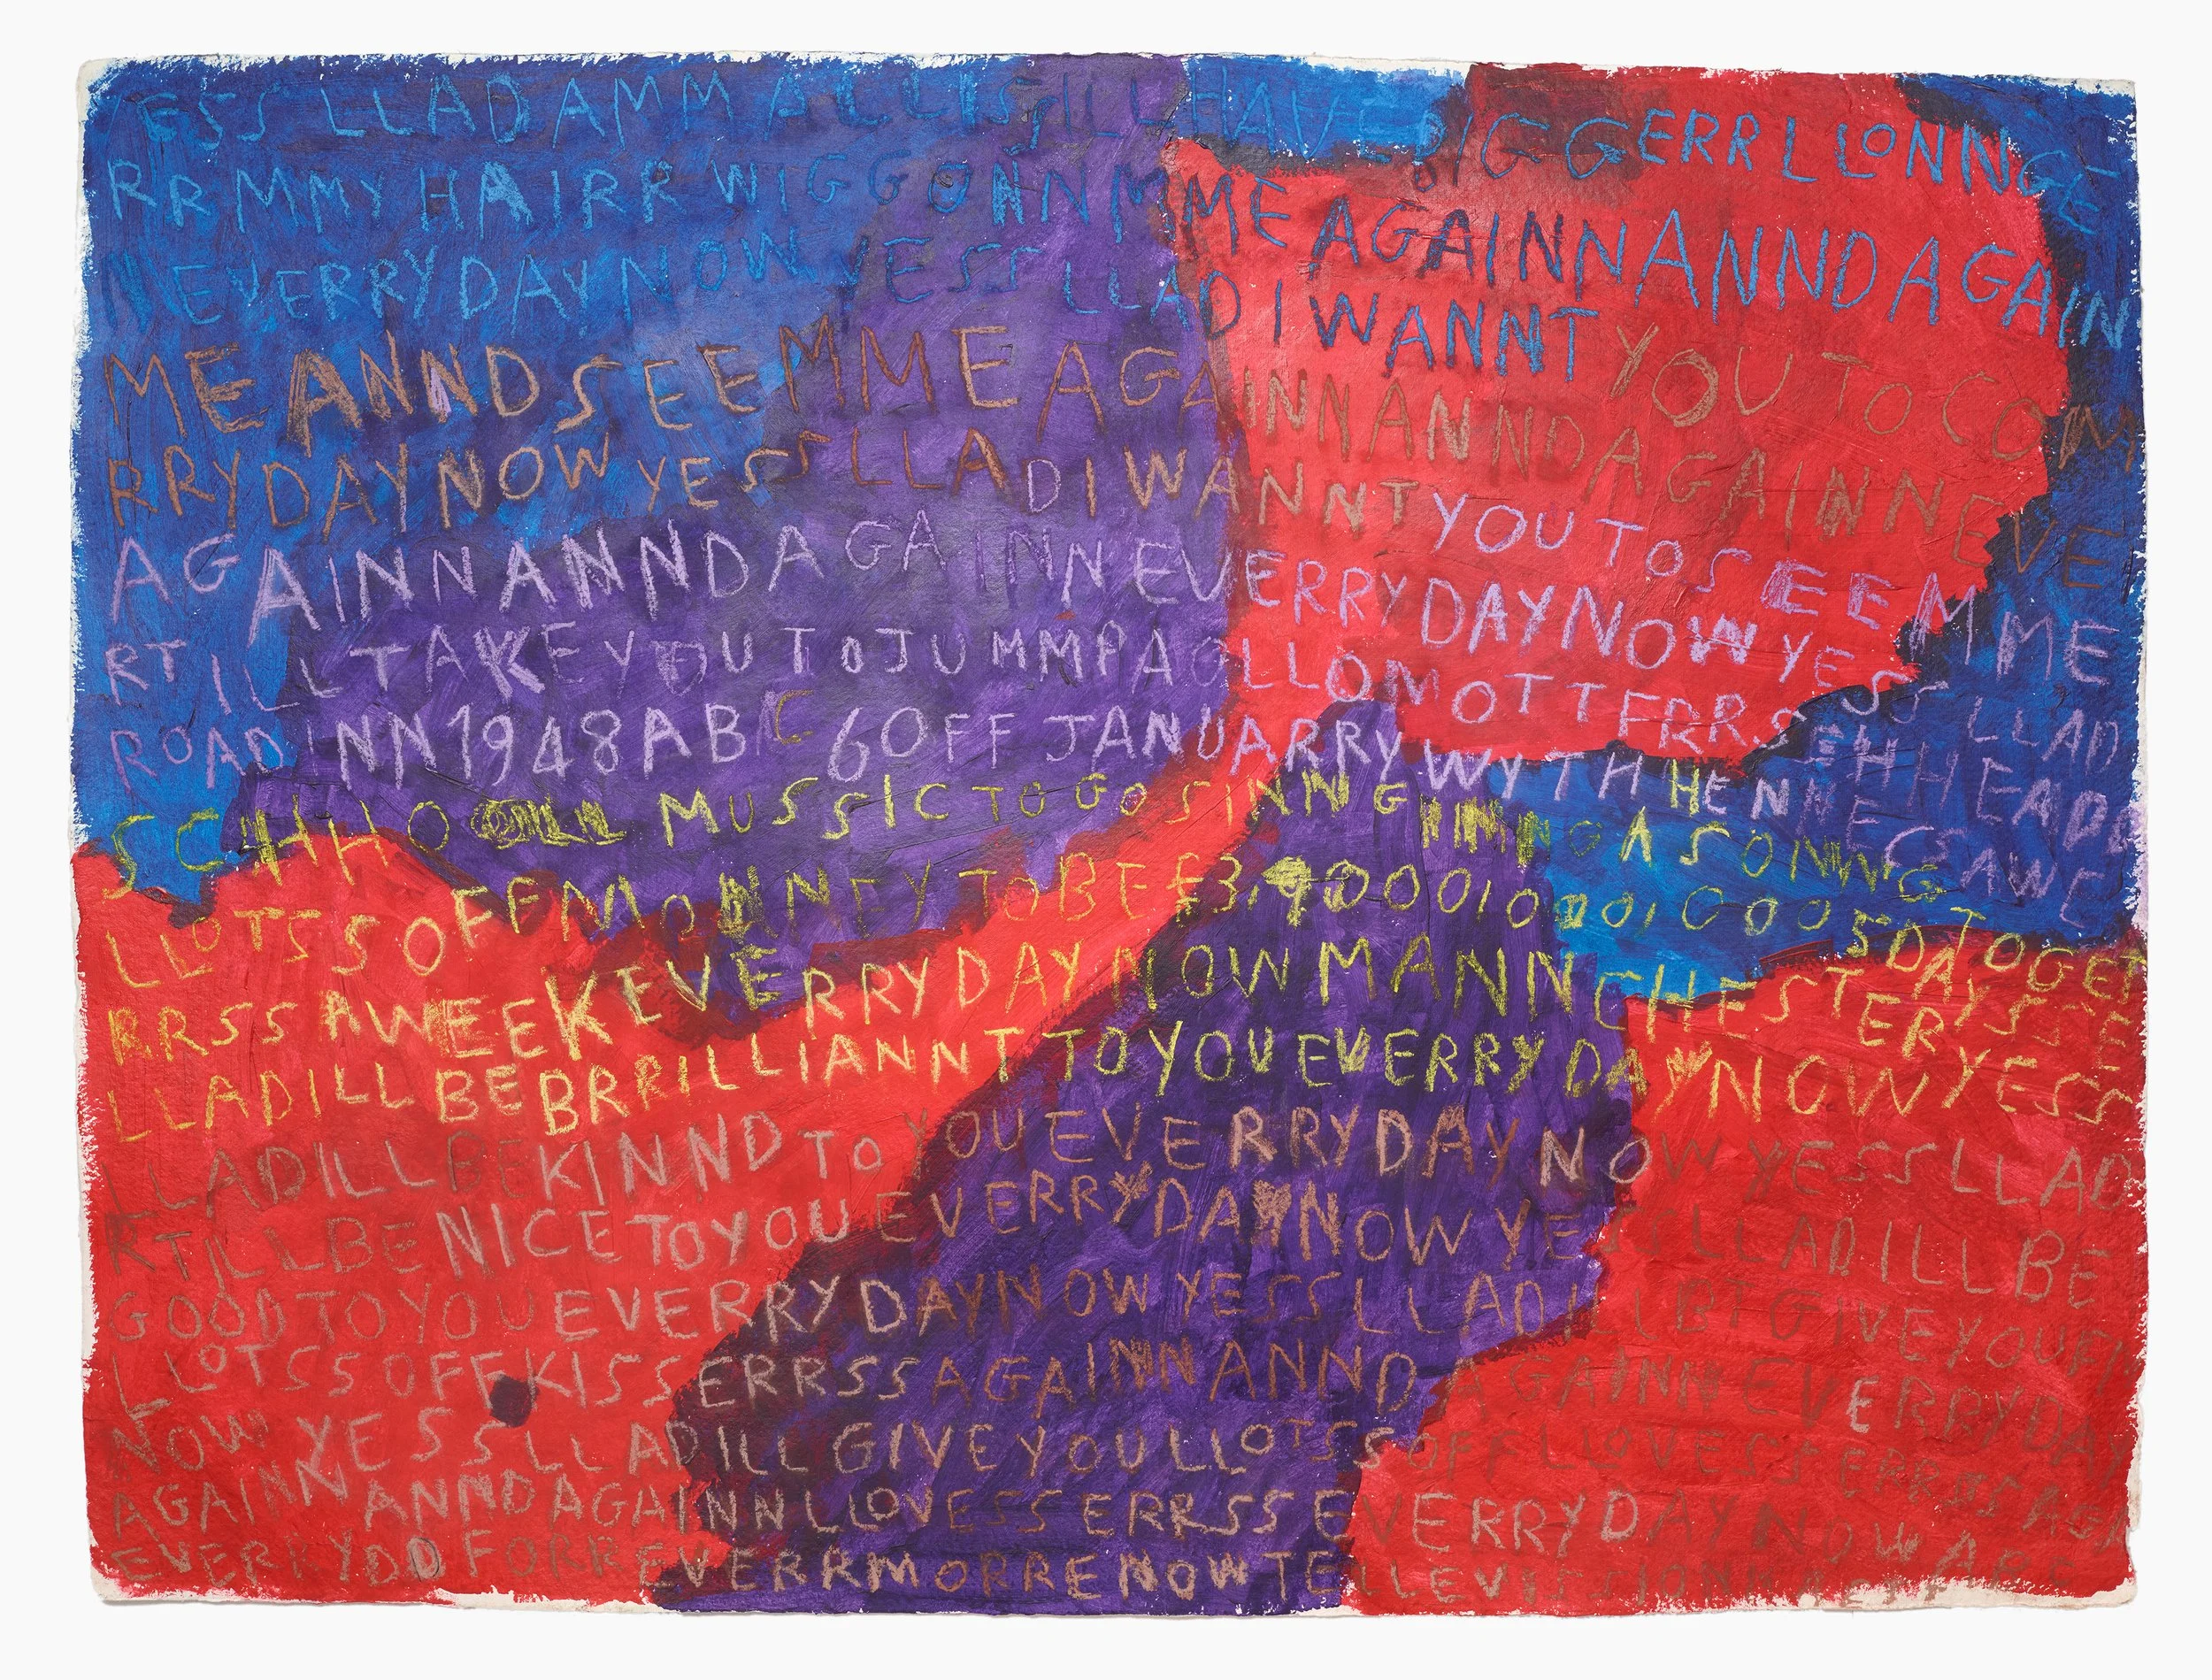 YESS LLAD AMM ALLISS ILL HAVE BIGGERR LLONNGE
RR MMY HAIRR WIGG ONN MME AGAINN ANND AGAIN
N EVERRYDAY NOW YESS LLAD I WANNT YOU TO COM
ME ANND SEE MME AGAINN ANND AGAINN EVE
RRYDAY NOW YESS LLAD I WANNT YOU TO SEE MME
AGAINN ANND AGAINN EVERRYDAY NOW YESS LLAD
RT ILL TAKE YOU TO JUMMP A GLLOMOTTERR.SEHHEAD
ROAD INN 1948 ABC 6OFF JANUARRY WYTHHENNESSAWE
SCHHOO MUSSIC TO GO SINNGINNG A SONNG
LLOTSS OFF MONNEY TO BE £3,9000010001GOOSD TO GET
RRSS A WEEK EVERRYDAY NOW MANNCHESTER DAYSSEE
LLAD ILL BE BRRILLIANNT TO YOU EVERRYDAY NOW YESS
LLAD ILL BE KINND TO YOU EVERRYDAY NOW YESS LLAD
RT ILL BE NICE TO YOU EVERRYDAY NOW YESS LLAD.ILL BE
GOOD TO YOU EVERRYDAY NOW YESS LLAD ILL BT GIVE YOU
LLOTSS OFF KISSERRSS AGAINN ANND AGAINN EVERRYDAY
NOW YESS LLAD ILL GIVE YOU LLOTSS OFF LLOVESSERRSS AGA
AGAINN ANND AGAINN LLOVESSERRSS EVERRYDAY NOW ABC
EVERRYDD FORREVERRMORRE NOW TELLEVISSIONN